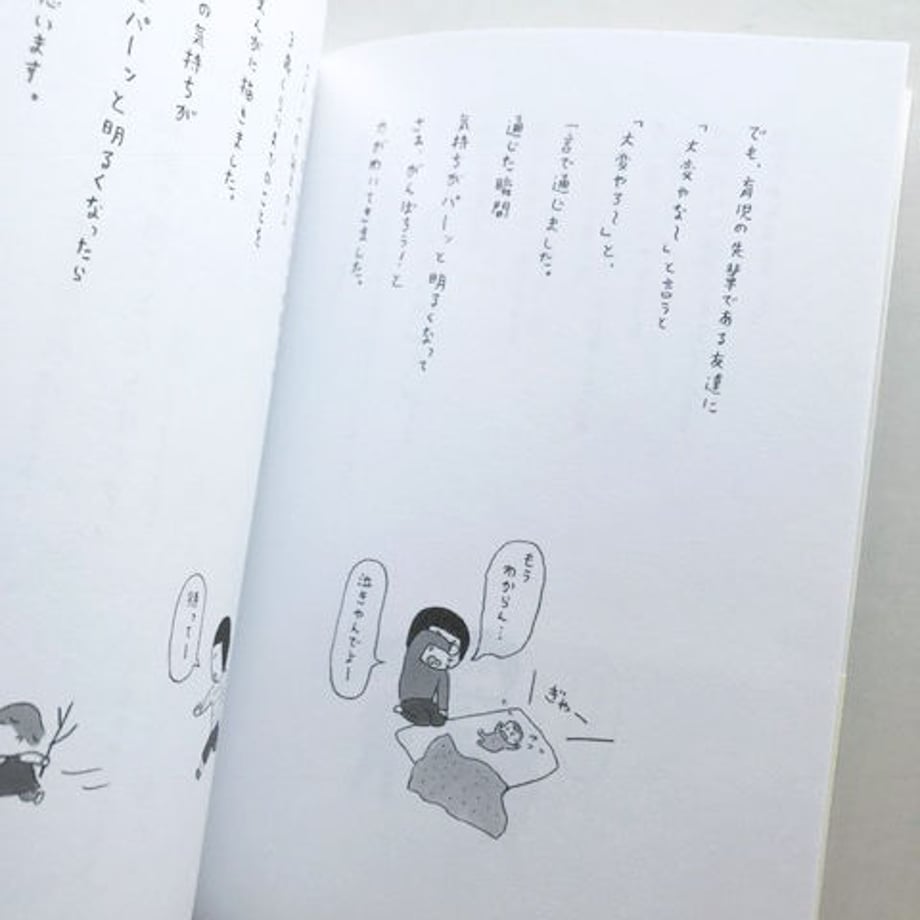 でも、育児の先輩である友達に
「大変やな〜」と言うと
「大変やろ〜」と、
一言で通じました。
通じた瞬間
気持ちがパーンと明るくなって
さあ、がんばろう!と
力がわいてきました。
もう
わからん…
泣きやんでよー
ぎゃー
まんがに描きました。
の気持ちが
パーンと明るくなったら
思います。
待ってー